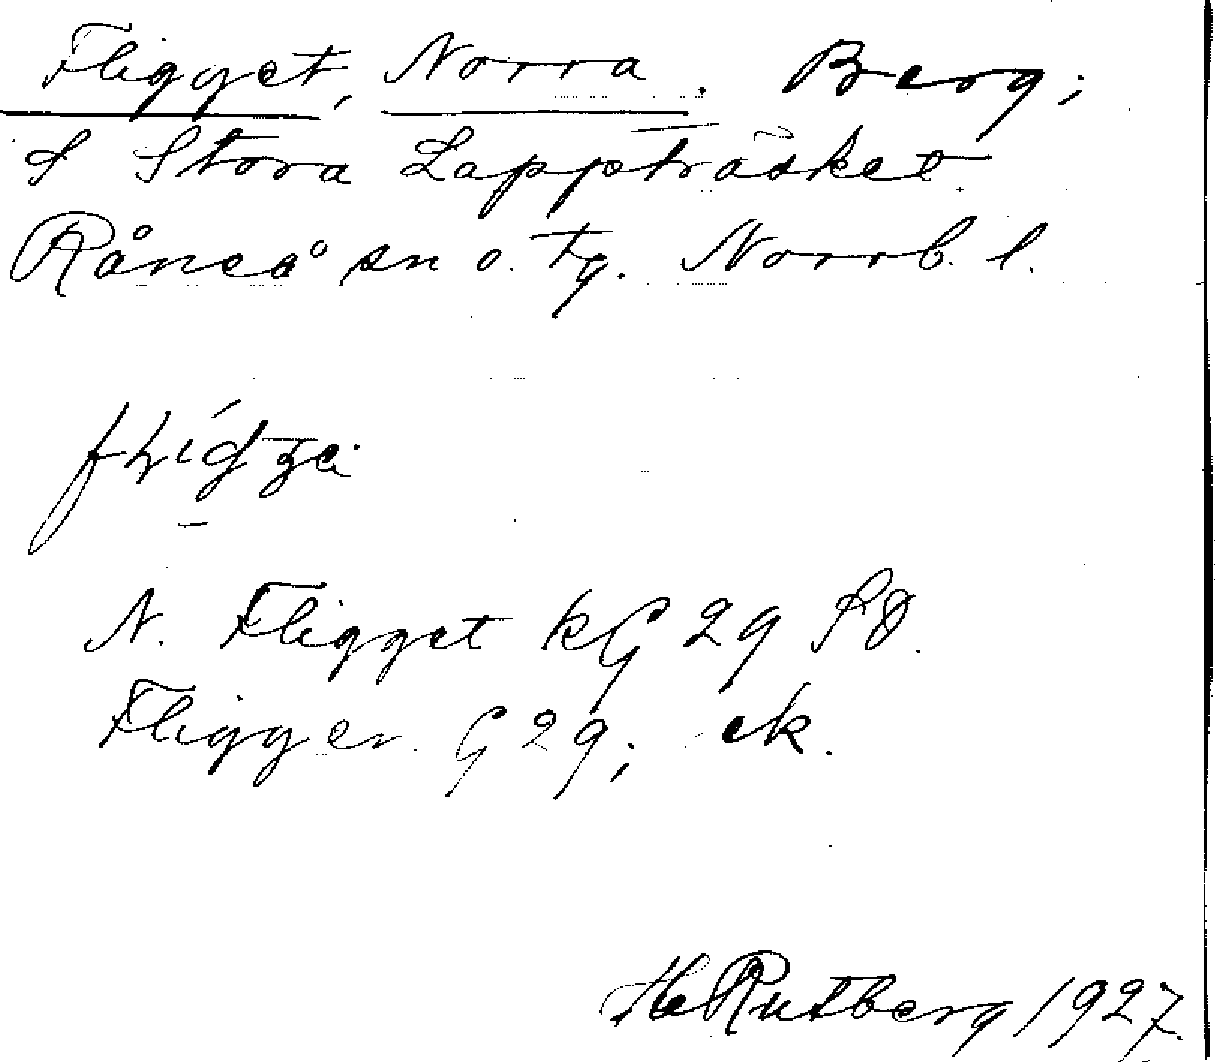 Fligget, Norra. Berg;
S Stora Lappträsket.
Råneå sn o. tg. Norrb. l.
N. Fligget kG 29 SO.
Fligger. G 29; ek.
H Rutberg 1927.